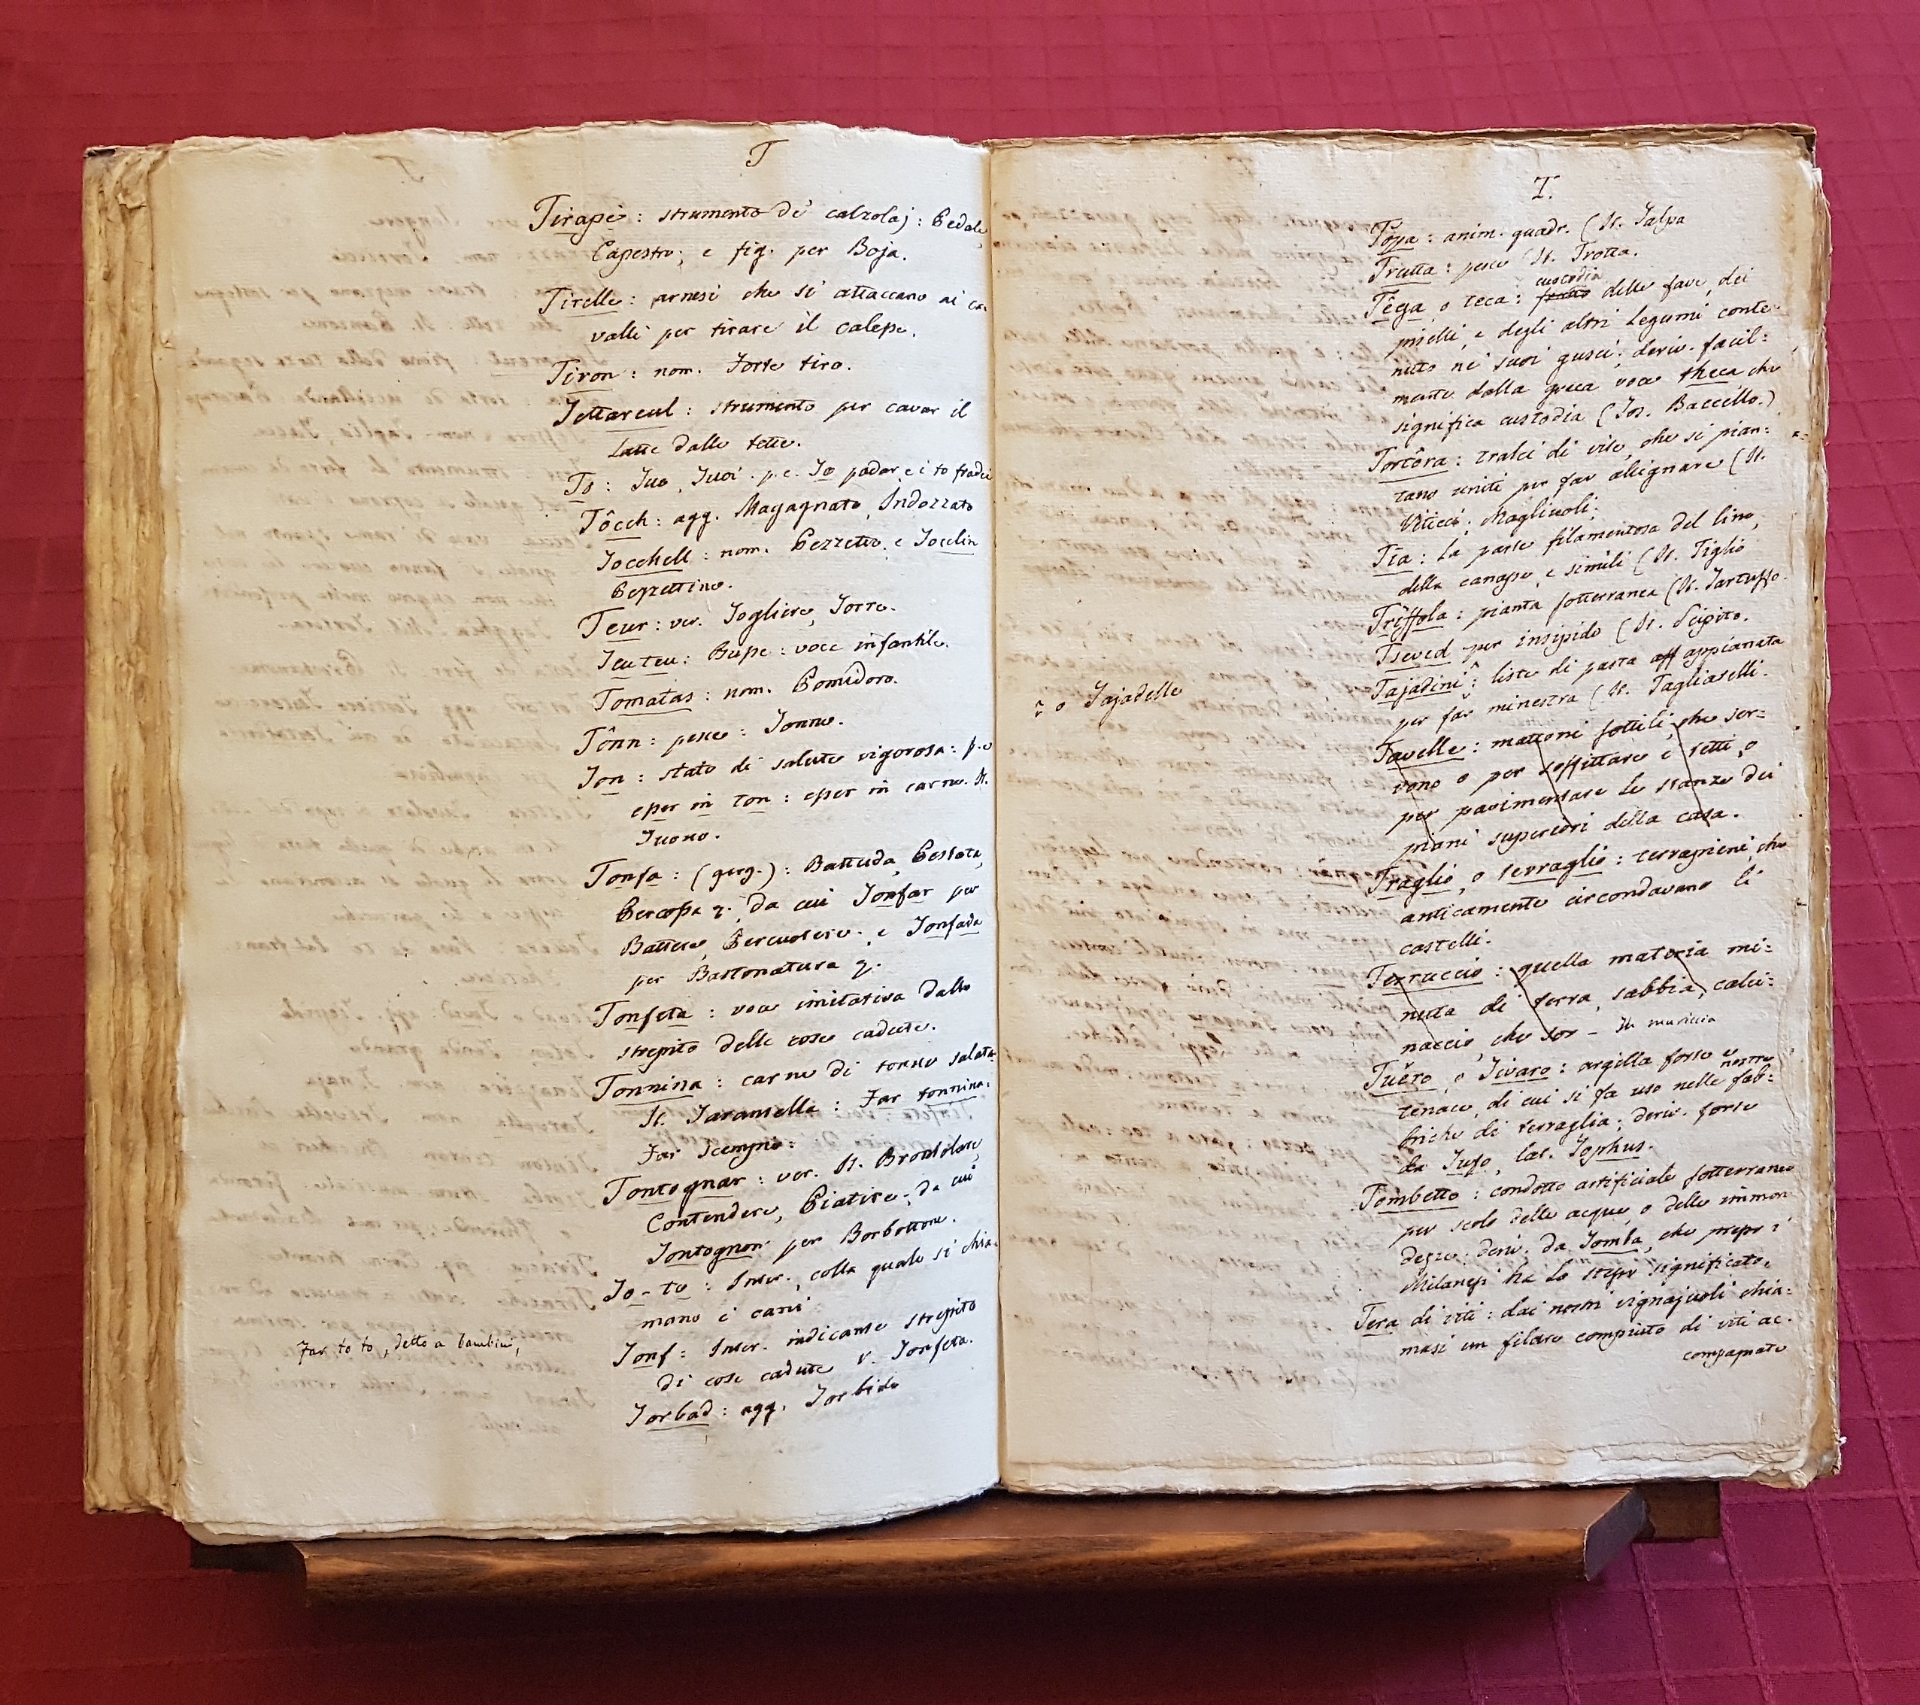 T
Tirapè: strumento de' calzolaj: Pedale
Capestro; e fig. per Boja.
Tirelle: arnesi che si attaccano ai ca-
valli per tirare il calesse.
Tiron: nom. Forte tiro.
Tettareul: strumento per cavar il
latte dalle tette.
To: Tuo, Tuoi. p.e. To pader, e i to fradei
Tôcch: agg. Magagnato, Indozzato
Tocchell: nom. Pezzetto, e Tocelin
Pezzettino.
Teur: ver. Togliere, Torre.
Teuteu: Bupe: voce infantile.
Tomatas: nom. Pomidoro.
Tônn: pesce: Tonno.
Ton: stato di salute vigorosa: p.e
esser in ton: esser in carne. It.
Tuono.
Tonfa: (gerg.): Battuda, Pestata,
Percossa &. da cui Tonfar per
Battere, Percuotere. e Tonfada
per Bastonatura &.
Tonfeta: voce imitativa dello
strepito delle cose cadute.
Tonnina: carne di tonno salata
It. Tarantella: Far tonnina:
Far Scempio:
Tontognar: ver. It. Brontolare,
Contendere, Piatire. da cui
Tontognon per Borbottone.
To-to: Inter. colla quale si chia-
mano i cani
Far to to, detto a bambini,
Tonf: Inter. indicante strepito
di cose cadute v. Tonfeta.
Torbad: agg. Torbido
T.
Topa: anim. quadr. (It. Talpa
Trutta: pesce (It. Trotta.
custodia
Têga, o teca: frutto delle fave, dei
piselli, e degli altri Legumi conte-
nuto ne' suoi gusci: deriv. facil:
mente dalla greca voce theca che
significa custodia (Tos. Baccello.)
Tortôra: tralci di vite, che si pian:
tano uniti per far alignare (It.
Viticci; Magliuoli;
Tia: la parte filamentosa del lino,
della canapa, e simili (It. Tiglio
Trîffola: pianta sotterranea (It. Tartuffo.
Tseved per insipido (It. Scipito.
Tajadinî: liste di pasta aff appianata
^ o Tajadelle
per far minestra (It. Tagliatelli.
Tavelle: mattoni sottili, che ser-
vono o per soffittare i tetti, o
per pavimentare le stanze dei
piani superiori della casa.
Traglio, o terraglio: terrapieni, che
anticamente circondavano li
castelli.
Terruccio: quella materia mi-
nuta di terra, sabbia, calci-
naccio, che sor - It muriccia
Tuêro, o Tivaro: argilla forte e
nostre
tenace, di cui si fa uso nelle fab-
briche di terraglia; deriv. forse
da Tufo, lat. Tophus.
Tombetto: condotto artificiale sotterraneo
per scolo delle acque, o delle immon
dezze: deriv. da Tomba, che presso i
Milanesi ha lo stesso significato.
Tera di viti: dai nostri vignajuoli chia-
masi un filare compiuto di viti ac-
compagnato